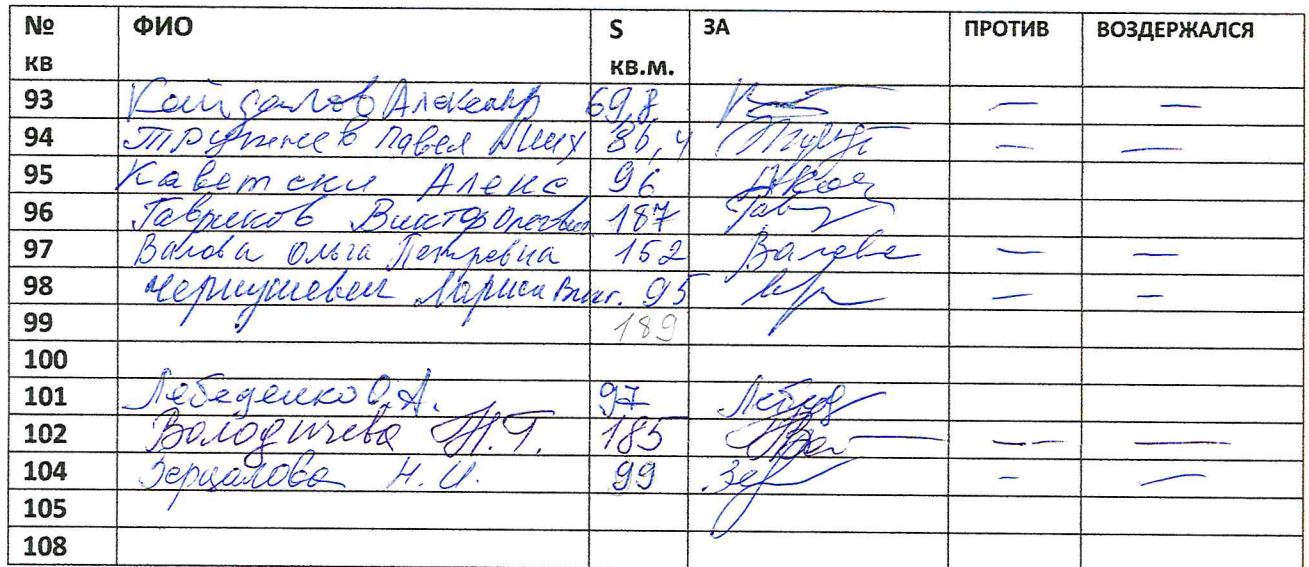 № кв ФИО S кв.м. ЗА ПРОТИВ ВОЗДЕРЖАЛСЯ
93 Кайдалов 69,8 — —
94 Павел 86,4 — —
95 Алекс 96
96 Гавриков Виктор Олегович 187
97 Валова Ольга Петровна 152 Валова — —
98 Лариса Викт. 95 — —
99 189
100
101 Лебеденко О.А. 97
102 Володичева Н.Т. 185 — —
104 Зерцалова Н.И. 99 — —
105
108